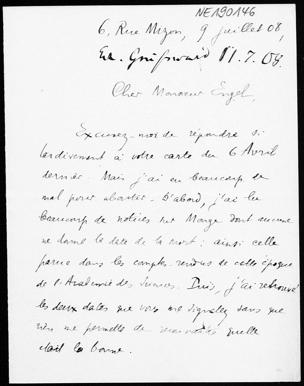 NE190146
6, Rue Mizon, 9 juillet 08,
11.7.08.
Cher Monsieur Engel,
Excusez-moi de répondre si
tardivement à votre carte du 6 Avril
dernier. Mais j'ai eu beaucoup de
mal pour aboutir. D'abord, j'ai lu
beaucoup de notices sur Monge dont aucune
ne donne la date de la mort : ainsi celle
parue dans les comptes-rendus de cette époque
de l'Académie des Sciences. Puis, j'ai retrouvé
les deux dates que vous me signalez sans que
rien me permette de quelle
était la bonne.